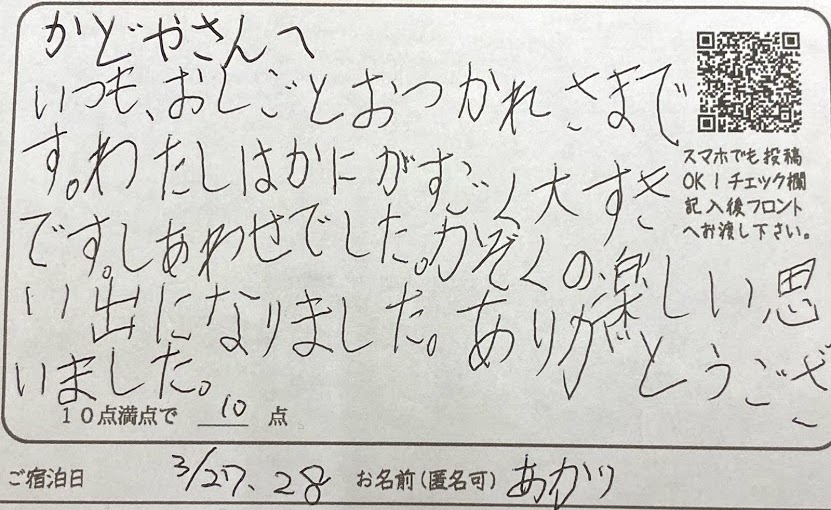 かどやさんへ
いつも、おしごとおつかれさまで
す。わたしはかにがすごく大すき
です。しあわせでした。かぞくの楽しい思
い出になりました。ありがとうござ
いました。
スマホでも投稿
OK！チェック欄
記入後フロント
へお渡し下さい。
10点満点で 10 点
ご宿泊日 3/27、28 お名前（匿名可） あかり